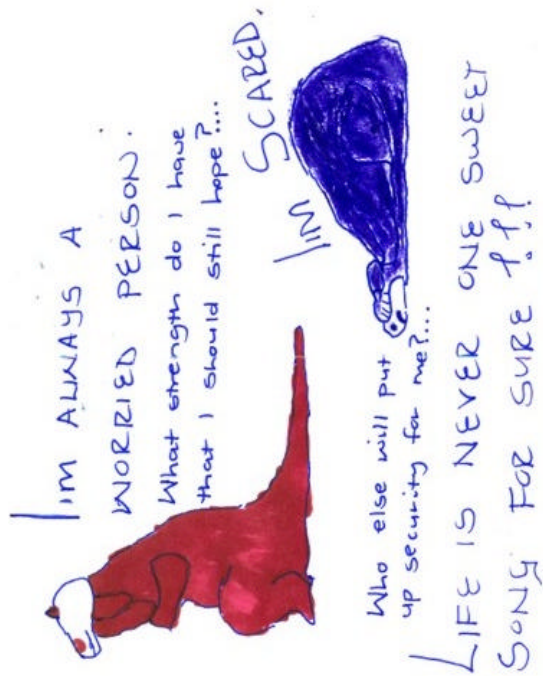 I'M ALWAYS A
WORRIED PERSON.
What strength do I have
that I should still hope?....
I'M SCARED.
Who else will put
up security for me?....
LIFE IS NEVER ONE SWEET
SONG FOR SURE !!!